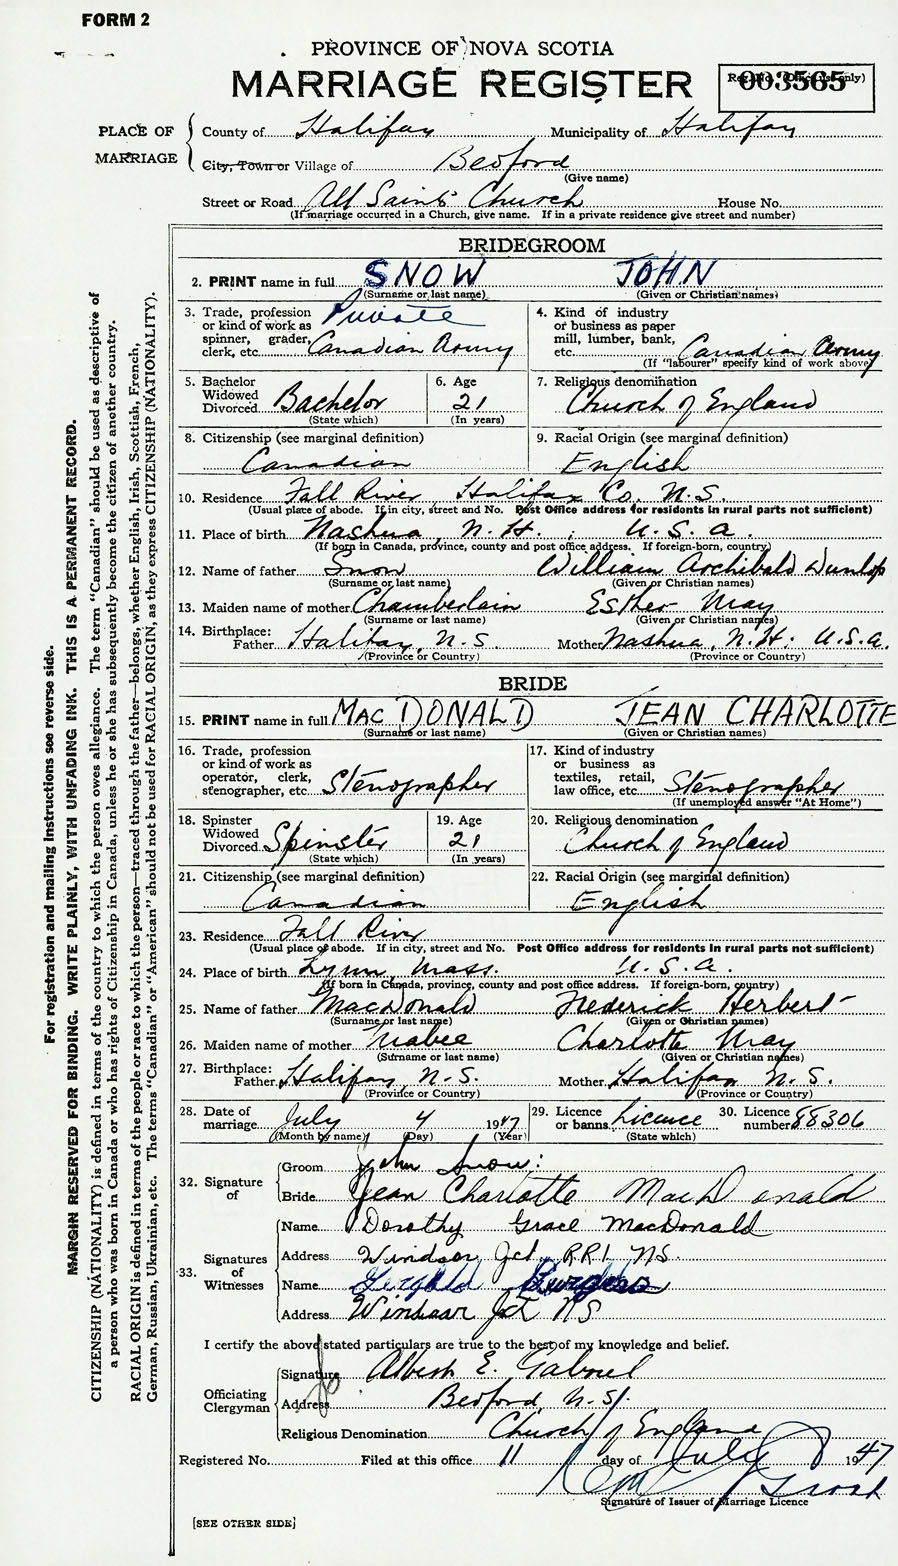 FORM 2
PROVINCE OF NOVA SCOTIA
MARRIAGE REGISTER
Reg. No. (Office use only)
003565
PLACE OF MARRIAGE
County of Halifax Municipality of Halifax
City, Town or Village of Bedford
(Give name)
Street or Road All Saints Church House No.
(If marriage occurred in a Church, give name. If in a private residence give street and number)
BRIDEGROOM
2. PRINT name in full SNOW JOHN
(Surname or last name) (Given or Christian names)
3. Trade, profession or kind of work as spinner, grader, clerk, etc. Private Canadian Army
4. Kind of industry or business as paper mill, lumber, bank, etc. Canadian Army
(If "labourer" specify kind of work above)
5. Bachelor Widowed Divorced Bachelor
(State which)
6. Age 21
(In years)
7. Religious denomination Church of England
8. Citizenship (see marginal definition) Canadian
9. Racial Origin (see marginal definition) English
10. Residence Fall River, Halifax Co. N.S.
(Usual place of abode. If in city, street and No. Post Office address for residents in rural parts not sufficient)
11. Place of birth Nashua, N.H., U.S.A.
(If born in Canada, province, county and post office address. If foreign-born, country)
12. Name of father Snow William Archibald Dunlop
(Surname or last name) (Given or Christian names)
13. Maiden name of mother Chamberlain Esther May
(Surname or last name) (Given or Christian names)
14. Birthplace: Father Halifax, N.S. Mother Nashua, N.H. U.S.A.
(Province or Country) (Province or Country)
BRIDE
15. PRINT name in full MACDONALD JEAN CHARLOTTE
(Surname or last name) (Given or Christian names)
16. Trade, profession or kind of work as operator, clerk, stenographer, etc. Stenographer
17. Kind of industry or business as textiles, retail, law office, etc. Stenographer
(If unemployed answer "At Home")
18. Spinster Widowed Divorced Spinster
(State which)
19. Age 21
(In years)
20. Religious denomination Church of England
21. Citizenship (see marginal definition) Canadian
22. Racial Origin (see marginal definition) English
23. Residence Fall River
(Usual place of abode. If in city, street and No. Post Office address for residents in rural parts not sufficient)
24. Place of birth Lynn, Mass. U.S.A.
(If born in Canada, province, county and post office address. If foreign-born, country)
25. Name of father MacDonald Frederick Herbert
(Surname or last name) (Given or Christian names)
26. Maiden name of mother Mabee Charlotte May
(Surname or last name) (Given or Christian names)
27. Birthplace: Father Halifax, N.S. Mother Halifax N.S.
(Province or Country) (Province or Country)
28. Date of marriage July 4 1947
(Month by name) (Day) (Year)
29. Licence or banns Licence
(State which)
30. Licence number 88306
32. Signature of
Groom John Snow
Bride Jean Charlotte MacDonald
33. Signatures of Witnesses
Name Dorothy Grace MacDonald
Address Windsor Jct. RR1 NS.
Name Burgess
Address Windsor Jct NS
I certify the above stated particulars are true to the best of my knowledge and belief.
Officiating Clergyman
Signature Albert E. Gabriel
Address Bedford, N.S.
Religious Denomination Church of England
Registered No. Filed at this office 11 day of July 1947
Signature of Issuer of Marriage Licence
[SEE OTHER SIDE]
For registration and mailing instructions see reverse side.
MARGIN RESERVED FOR BINDING. WRITE PLAINLY, WITH UNFADING INK. THIS IS A PERMANENT RECORD.
CITIZENSHIP (NATIONALITY) is defined in terms of the country to which the person owes allegiance. The term "Canadian" should be used as descriptive of
a person who was born in Canada or who has rights of Citizenship in Canada, unless he or she has subsequently become the citizen of another country.
RACIAL ORIGIN is defined in terms of the people or race to which the person—traced through the father—belongs, whether English, Irish, Scottish, French,
German, Russian, Ukrainian, etc. The terms "Canadian" or "American" should not be used for RACIAL ORIGIN, as they express CITIZENSHIP (NATIONALITY).